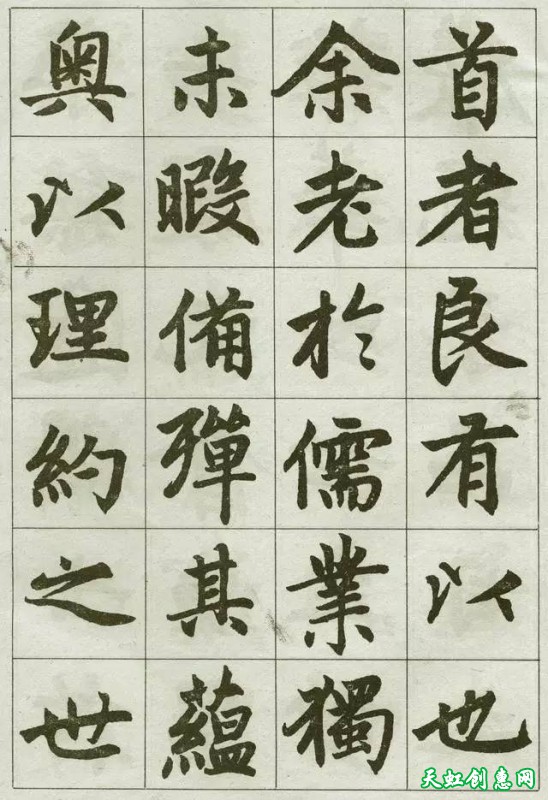 首者良有以也
余老於儒業獨
未暇備殫其蘊
奥以理約之世
天虹创惠网